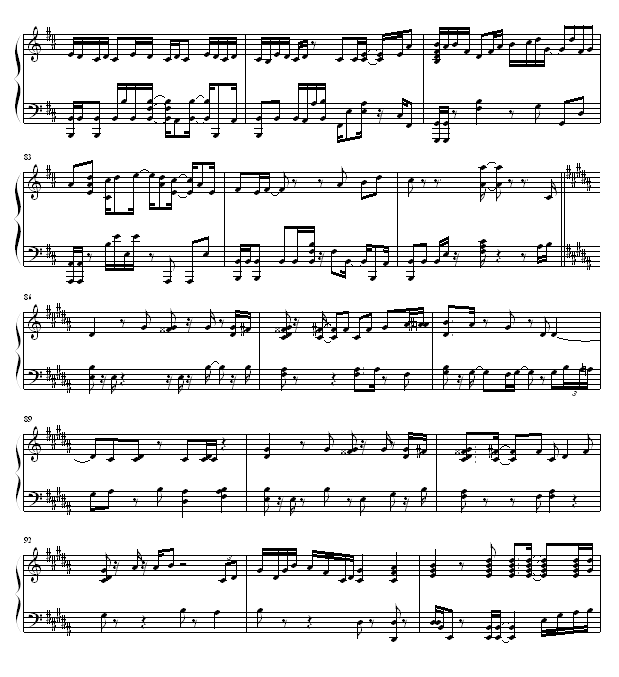 83
86
3
89
92